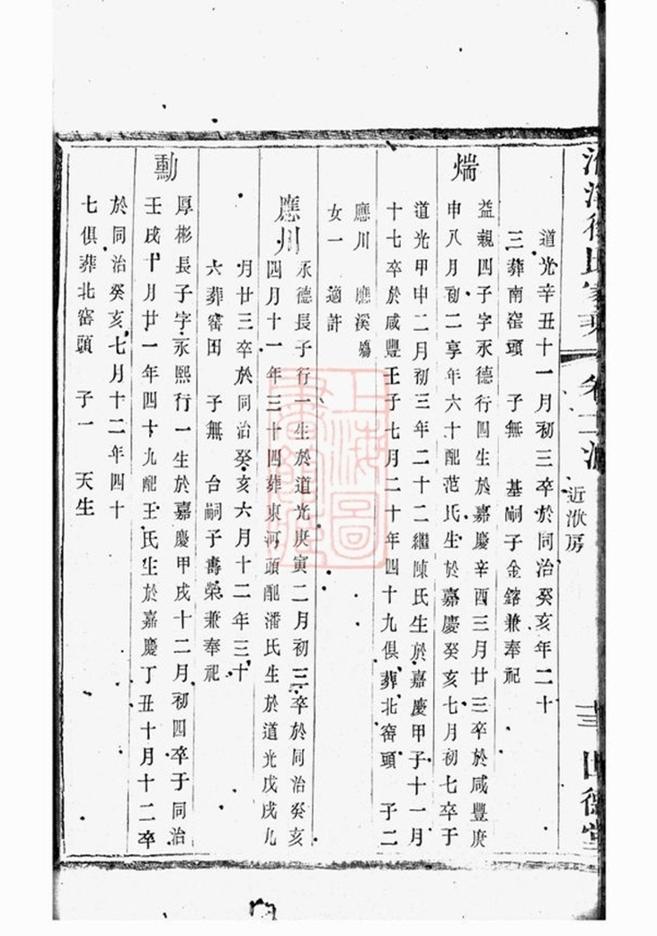 近洑房
十三
世德堂
道光辛丑十一月初三卒於同治癸亥年二十
三葬南窰頭　子無　基嗣子金鎔兼奉祀
煓　益親四子字永德行四生於嘉慶辛酉三月廿三卒於咸豐庚
申八月初二享年六十配范氏生於嘉慶癸亥七月初七卒于
道光甲申二月初三年二十二繼陳氏生於嘉慶甲子十一月
十七卒於咸豐壬子七月二十年四十九俱葬北窰頭　子二
應川　應溪殤
女一　適許
應川　永德長子行一生於道光庚寅二月初三卒於同治癸亥
四月十一年三十四葬東河頭配潘氏生於道光戊戌九
月廿三卒於同治癸亥六月十二年三十
六葬窰田　子無　台嗣子壽榮兼奉祀
勳　厚彬長子字永熙行一生於嘉慶甲戌十二月初四卒于同治
壬戌十月廿一年四十九配王氏生於嘉慶丁丑十月十二卒
於同治癸亥七月十二年四十
七俱葬北窰頭　子一　天生
上海圖
書館藏